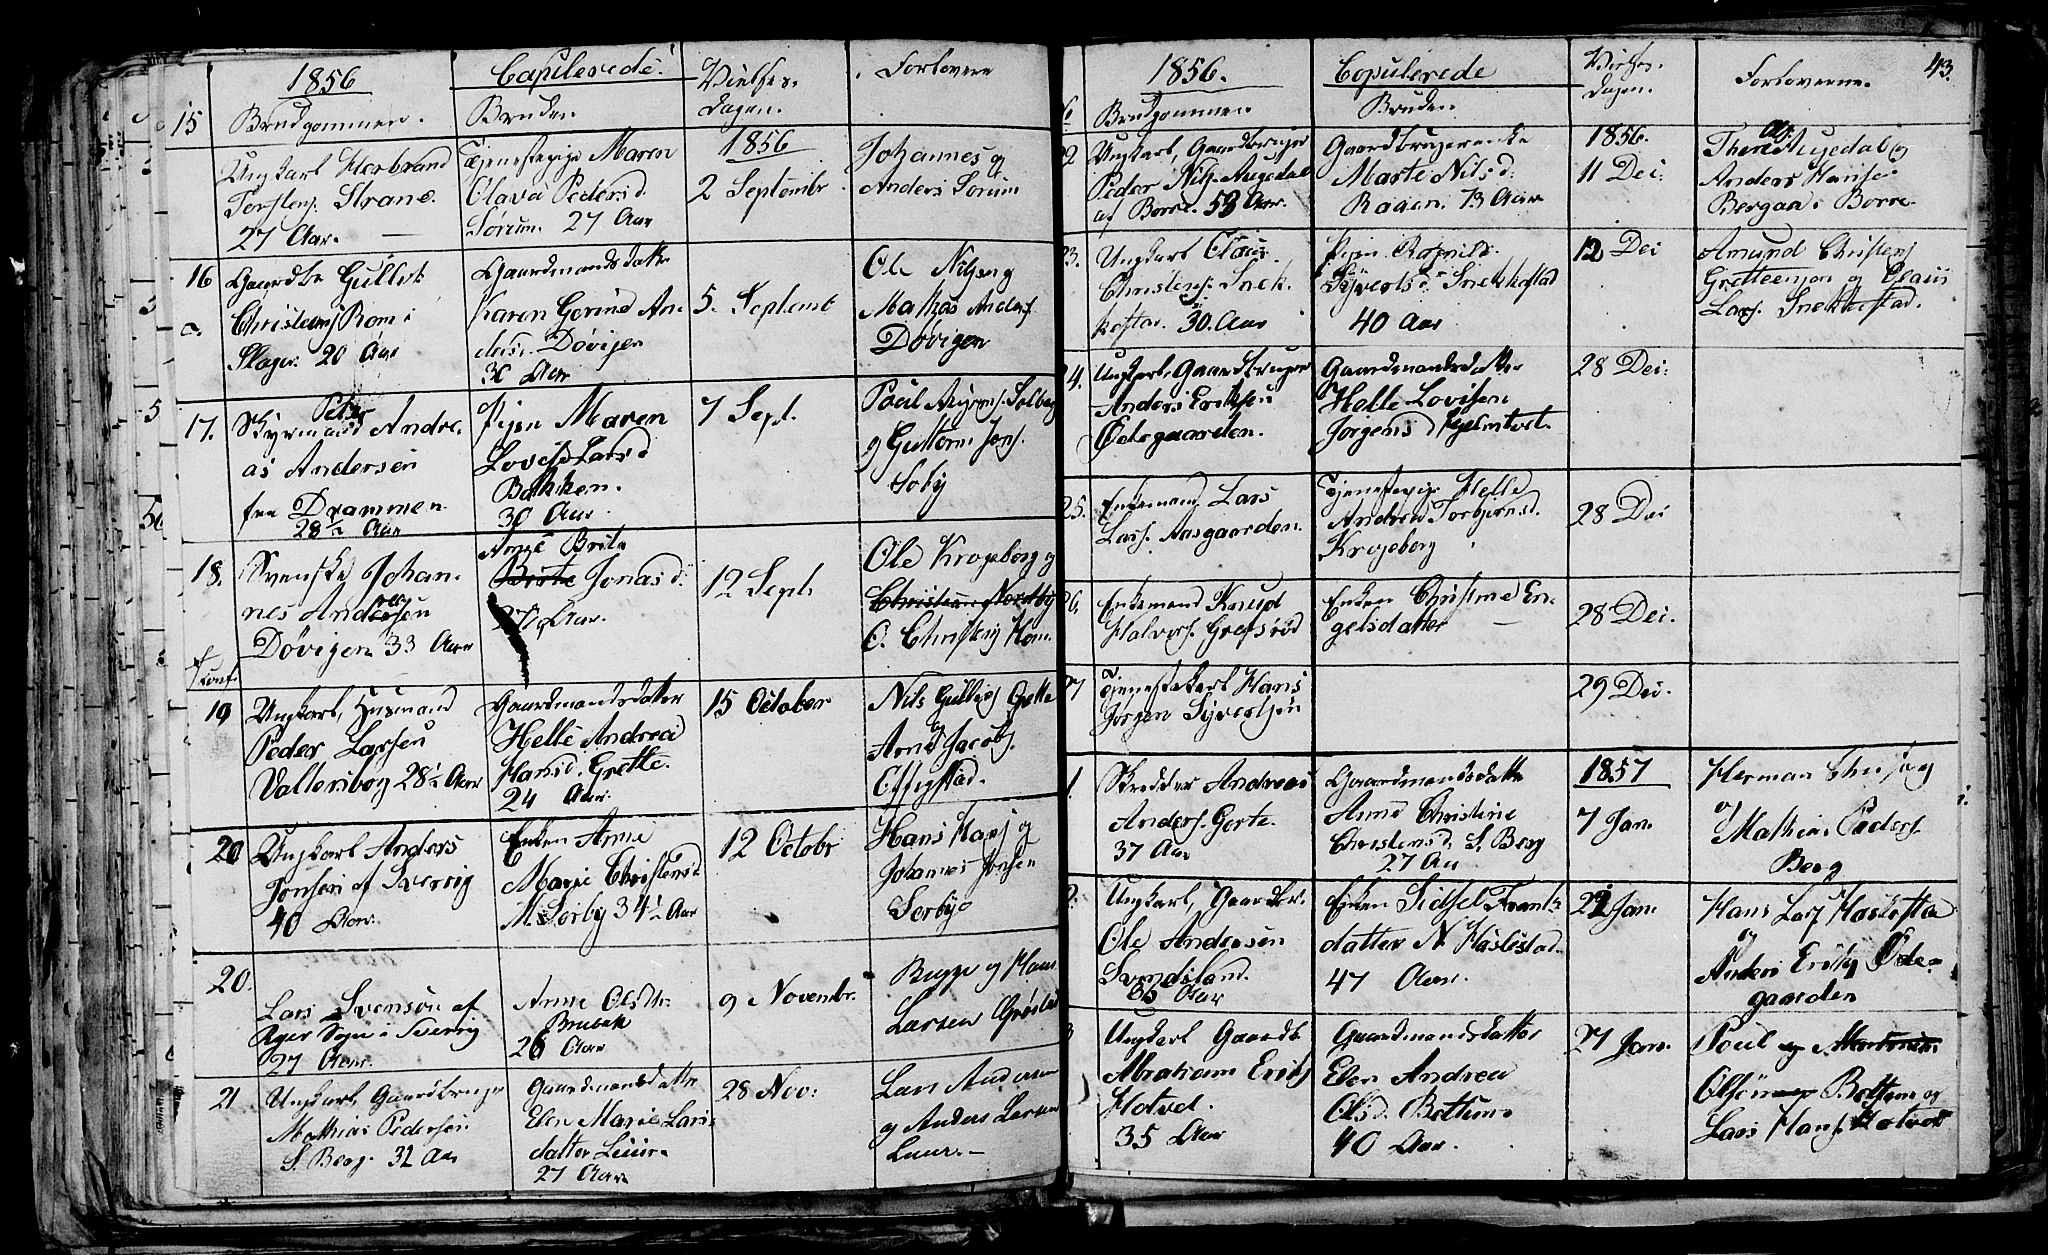 1856
Copulerede.
Vielses-
dagen.
Forlovere
15
Brudgommen.
Bruden
1856
Ungkarl Herbrand
Torstens. Strane.
27 Aar.
Tjenestepige Maren
Olava Pedersd.
Sørum. 27 Aar
2 Septembr
Johannes og
Anders Sørum
16
Gaardbr Gullik
Christens Rom i
Slagn. 20 Aar
Gaardmandsdatter
Karen Gorine An-
dersd. Døvigen
30 Aar
5. Septemb
Ole Nilsen og
Mathias Anders.
Døvigen
17.
Peter
Styrmand Andre-
as Andersen
fra Drammen
28½ Aar
Pigen Maren
Lovise Larsd
Bakken.
30 Aar
7 Sept.
Poul Solberg
og Guttorm Jons.
Søby
18.
Svenske Johan-
nes Andersen
Døvigen 33 Aar
Anne Brita
Brite Jonasd.
27 Aar.
12 Sept.
Ole Krogeborg og
Christian Nordby
O. Christens Rom.
19
Ungkarl, Husmand
Peder Larsen
Valtersborg 28½ Aar
Gaardmandsdatter
Helle Andrea
Hansd. Grette.
24 Aar.
15 October
Nils Gulliks Grette
og
Arne Jacobs.
Effigstad.
20
Ungkarl Anders
Jonsen af Sverrig
40 Aar.
Enken Anne
Marie Christensd
M. Sørby 34½ Aar
12 Octobr
Hans Hans og
Johannes Jonsen
Sørby
20.
Lars Svensøn af
Ryer Sogn i Sverrig
27 Aar.
Anne Olsdtr.
Brubak
26 Aar
9 Novembr.
Bugge og Hans
Larsen
21
Ungkarl Gaardbruger
Mathias Pedersen
S. Berg. 32 Aar
Gaardmandsdatter
Elen Marie Lars-
datter Linnr.
27 Aar
28 Nov.
Lars Andersen
og Anders Larsen
Linnr.
1856.
Copulerede
Vielses-
dagen.
Forloverne.
43.
Brudgommen
Bruden.
22
Ungkarl, Gaardbruger
Peder Nils. Augedal
af Borre. 58 Aar.
Gaardbrugerenke
Marte Nilsd.
Raaen. 73 Aar
1856.
11 Dec.
Augedal og
Anders Hansen
Bergan i Borre
23.
Ungkarl Claus
Christens. Snek-
kestad. 30. Aar
Pigen Ragnild
Syvertsd. Snekkestad
40 Aar
12 Dec
Amund Christens
Gretteenjon og Claus
Lars. Snekkestad.
24.
Ungkarl, Gaardbruger
Anders Eriksen
Ødegaarden.
Gaardmandsdatter
Helle Lovisen
Jørgensd Hjelmtvet.
28 Dec.
25.
Enkemand Lars
Lars. Aasgaarden.
Tjenestepige Helle
Andrea Torbjørnsd.
Krogeborg
28 Dec
26.
Enkemand Knud
Halvors. Grefsrød
Enken Christine En-
gelsdatter
28 Dec.
27
Tjenestekarl Hans
Jørgen Syvertsen
29 Dec.
1.
Skrædder Andreas
Anders. Gorte.
37 Aar
Gaardmandsdatter
Anne Christine
Christensd. S. Berg
27 Aar
1857
7 Jan.
Herman Christens
og
Mathias Peders.
Berg
2.
Ungkarl, Gaardbr.
Ole Andersen
Svendsland.
35 Aar
Enken Sidsel Frants-
datter N Haslestad.
47 Aar.
22 Jan.
Hans Lars Haslestad
og
Anders Eriks Øde-
gaarden
3
Ungkarl Gaardb
Abraham Eriks
Hotvet.
35 Aar
Gaardmandsdatter
Elen Andrea
Olsd. Bettum
40 Aar.
27 Jan.
Poul
Olsen Bettum og
Lars Hans. Hotvet